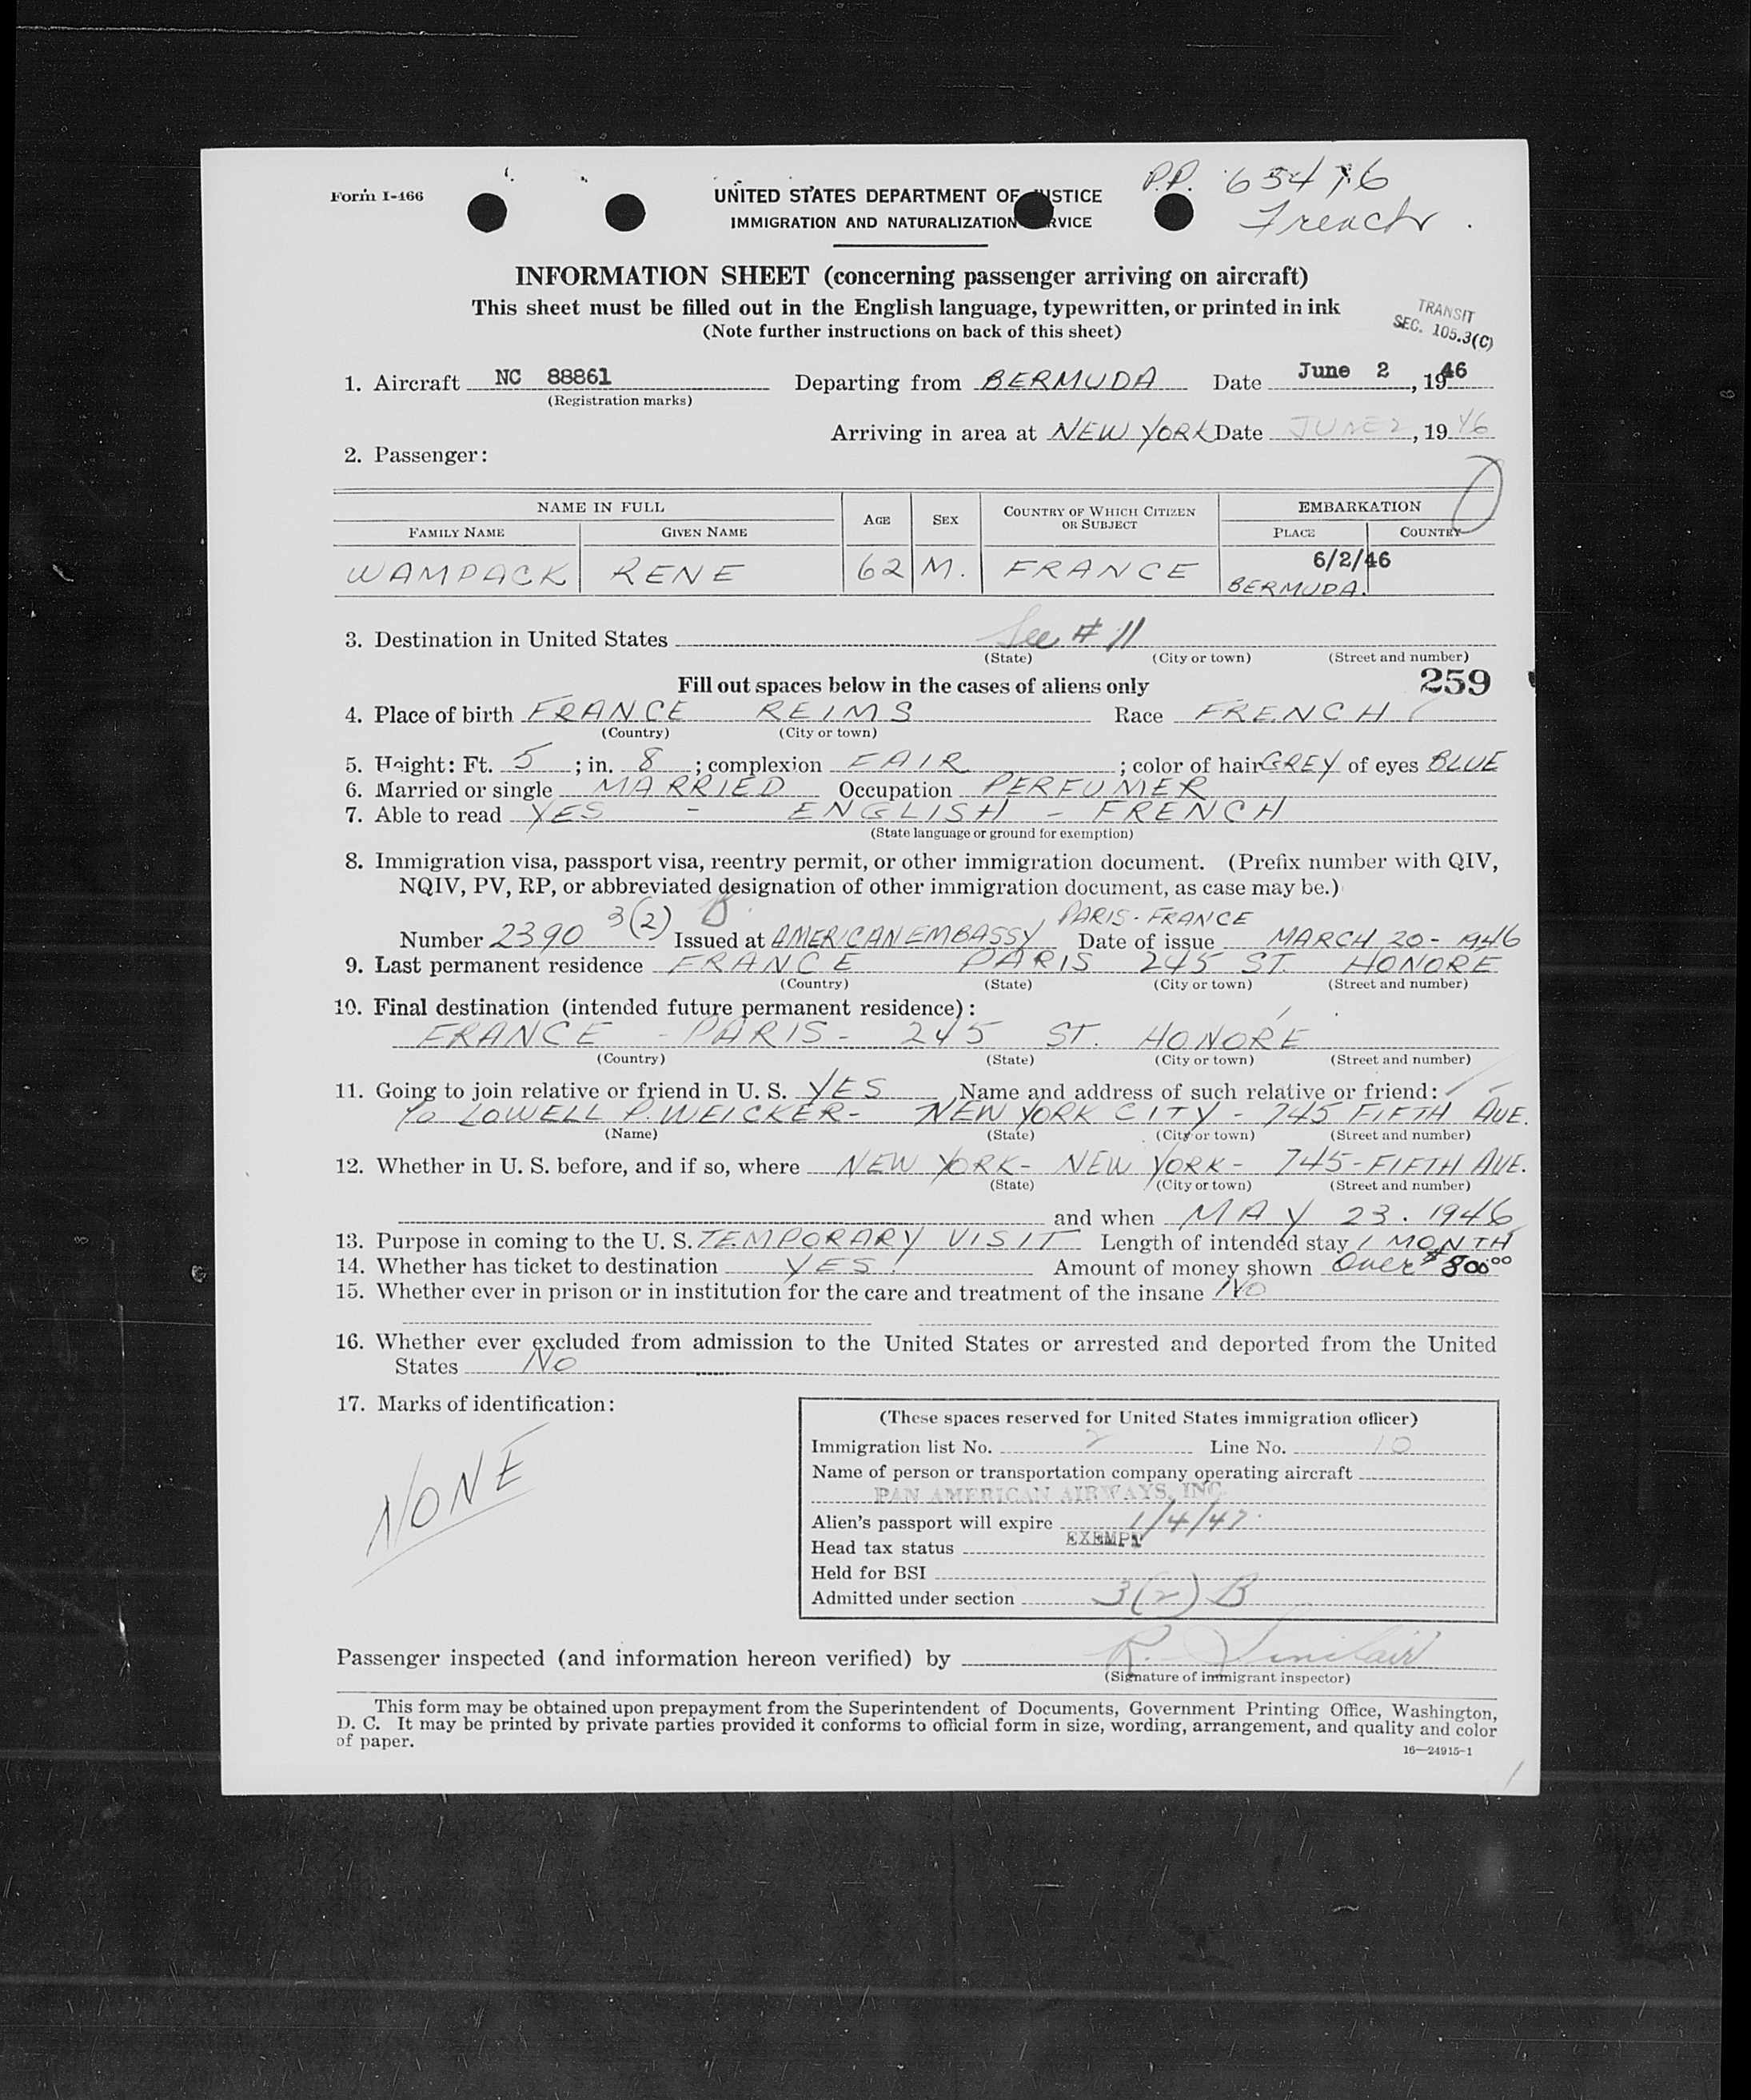 P.P. 65476
French
Form I-466
UNITED STATES DEPARTMENT OF JUSTICE
IMMIGRATION AND NATURALIZATION SERVICE
INFORMATION SHEET (concerning passenger arriving on aircraft)
This sheet must be filled out in the English language, typewritten, or printed in ink
(Note further instructions on back of this sheet)
TRANSIT
SEC. 105.3(C)
1. Aircraft NC 88861 Departing from BERMUDA Date June 2, 1946
(Registration marks)
Arriving in area at NEW YORK Date JUNE 2, 1946
2. Passenger:
NAME IN FULL AGE SEX COUNTRY OF WHICH CITIZEN OR SUBJECT EMBARKATION
FAMILY NAME GIVEN NAME PLACE COUNTRY
6/2/46
WAMPACK RENE 62 M. FRANCE BERMUDA.
3. Destination in United States See # 11
(State) (City or town) (Street and number)
Fill out spaces below in the cases of aliens only 259
4. Place of birth FRANCE REIMS Race FRENCH
(Country) (City or town)
5. Height: Ft. 5; in. 8; complexion FAIR; color of hair GREY of eyes BLUE
6. Married or single MARRIED Occupation PERFUMER
7. Able to read YES - ENGLISH - FRENCH
(State language or ground for exemption)
8. Immigration visa, passport visa, reentry permit, or other immigration document. (Prefix number with QIV,
NQIV, PV, RP, or abbreviated designation of other immigration document, as case may be.)
3(2) B. PARIS - FRANCE
Number 2390 Issued at AMERICAN EMBASSY Date of issue MARCH 20 - 1946
9. Last permanent residence FRANCE PARIS 245 ST. HONORE
(Country) (State) (City or town) (Street and number)
10. Final destination (intended future permanent residence):
FRANCE - PARIS - 245 ST. HONORE
(Country) (State) (City or town) (Street and number)
11. Going to join relative or friend in U. S. YES Name and address of such relative or friend:
℅ LOWELL P. WEICKER - NEW YORK CITY - 745 FIFTH AVE.
(Name) (State) (City or town) (Street and number)
12. Whether in U. S. before, and if so, where NEW YORK - NEW YORK - 745 - FIFTH AVE.
(State) (City or town) (Street and number)
and when MAY 23. 1946
13. Purpose in coming to the U. S. TEMPORARY VISIT Length of intended stay 1 MONTH
14. Whether has ticket to destination YES. Amount of money shown Over $800.00
15. Whether ever in prison or in institution for the care and treatment of the insane NO
16. Whether ever excluded from admission to the United States or arrested and deported from the United
States NO
17. Marks of identification:
NONE
(These spaces reserved for United States immigration officer)
Immigration list No. 2 Line No. 10
Name of person or transportation company operating aircraft
PAN AMERICAN AIRWAYS, INC.
Alien's passport will expire 1/4/47.
Head tax status EXEMPT
Held for BSI
Admitted under section 3(2) B
Passenger inspected (and information hereon verified) by R. Sinclair
(Signature of immigrant inspector)
This form may be obtained upon prepayment from the Superintendent of Documents, Government Printing Office, Washington,
D. C. It may be printed by private parties provided it conforms to official form in size, wording, arrangement, and quality and color
of paper.
16—24915-1